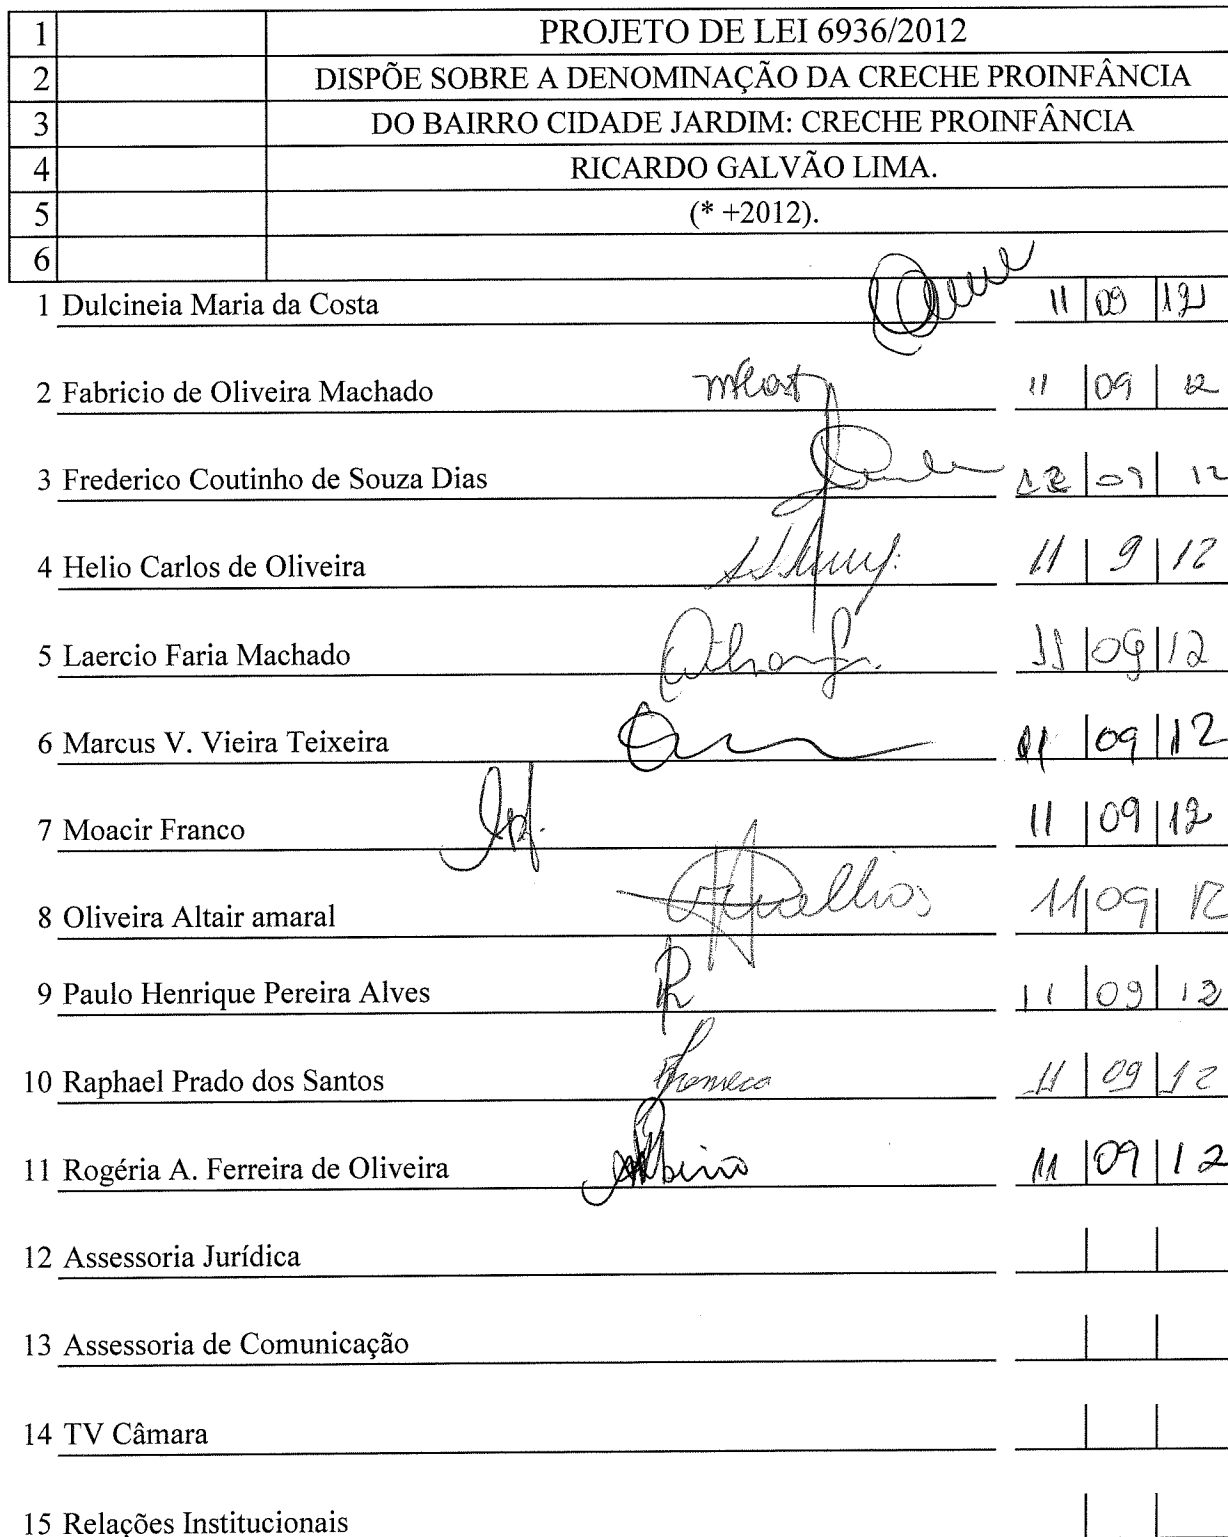 1 PROJETO DE LEI 6936/2012
2 DISPÕE SOBRE A DENOMINAÇÃO DA CRECHE PROINFÂNCIA
3 DO BAIRRO CIDADE JARDIM: CRECHE PROINFÂNCIA
4 RICARDO GALVÃO LIMA.
5 (* +2012).
6
1 Dulcineia Maria da Costa 11 09 12
2 Fabricio de Oliveira Machado 11 09 12
3 Frederico Coutinho de Souza Dias 12 09 12
4 Helio Carlos de Oliveira 11 9 12
5 Laercio Faria Machado 11 09 12
6 Marcus V. Vieira Teixeira 11 09 12
7 Moacir Franco 11 09 12
8 Oliveira Altair amaral 11 09 12
9 Paulo Henrique Pereira Alves 11 09 12
10 Raphael Prado dos Santos 11 09 12
11 Rogéria A. Ferreira de Oliveira 11 09 12
12 Assessoria Jurídica
13 Assessoria de Comunicação
14 TV Câmara
15 Relações Institucionais